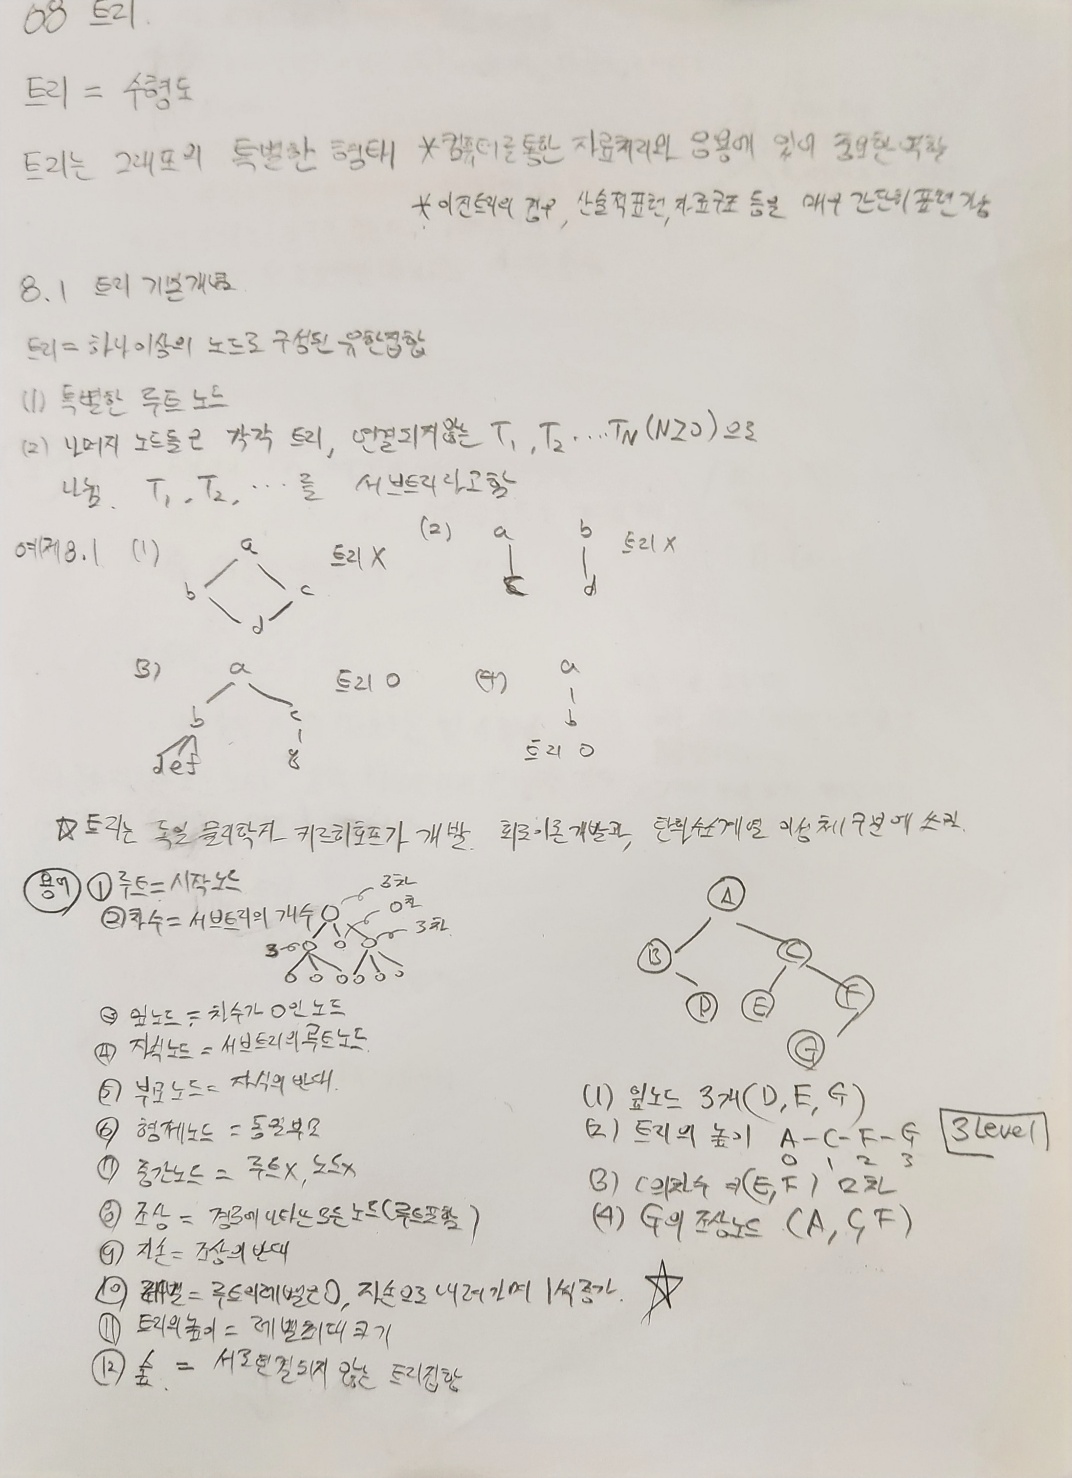 08 트리.
트리 = 수형도
트리는 그래프의 특별한 형태 *컴퓨터를 통한 자료처리와 응용에 있어 중요한 역할
*이진트리의 경우, 산술적표현, 자료구조 등을 매우 간단히 표현가능
8.1 트리 기본개념
트리 = 하나이상의 노드로 구성된 유한집합
(1) 특별한 루트 노드
(2) 나머지 노드들은 각각 트리, 연결되지않는 T1, T2 ... TN (N≥0)으로
나뉨. T1, T2, ... 를 서브트리라고함
예제8.1 (1) a b c d 트리 X (2) a c b d 트리 X
(3) a b c d e f g 트리 O (4) a b 트리 O
☆ 트리는 독일 물리학자 키르히호프가 개발. 회로이론개발과, 탄화수소계열 이성체 구분에 쓰임.
용어 ① 루트 = 시작노드
② 차수 = 서브트리의 개수 3차 0차 3차 3
③ 잎노드 = 차수가 0인 노드
④ 자식노드 = 서브트리의 루트노드
⑤ 부모노드 = 자식의 반대.
⑥ 형제노드 = 동일부모
⑦ 중간노드 = 루트X, 노드X
⑧ 조상 = 경로에 나타는 모든 노드(루트포함)
⑨ 자손 = 조상의 반대
⑩ 레벨 = 루트의레벨은 0, 자손으로 내려가며 1씩 증가. ☆
⑪ 트리의높이 = 레벨최대 크기
⑫ 숲 = 서로연결되지 않는 트리집합
A
B C
D E F
G
(1) 잎노드 3개 (D, E, G)
(2) 트리의 높이 A-C-F-G 3Level
0 1 2 3
(3) C의차수 (E, F) 2차
(4) G의 조상노드 (A, C, F)